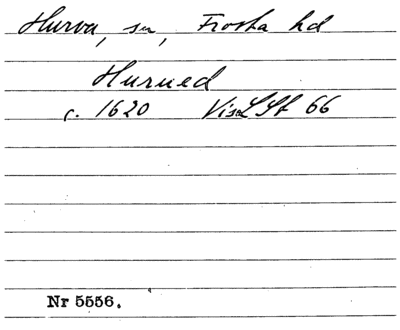 Hurva, sn, Frosta hd
Hurued
c. 1620 VisLSt 66
Nr 5556.